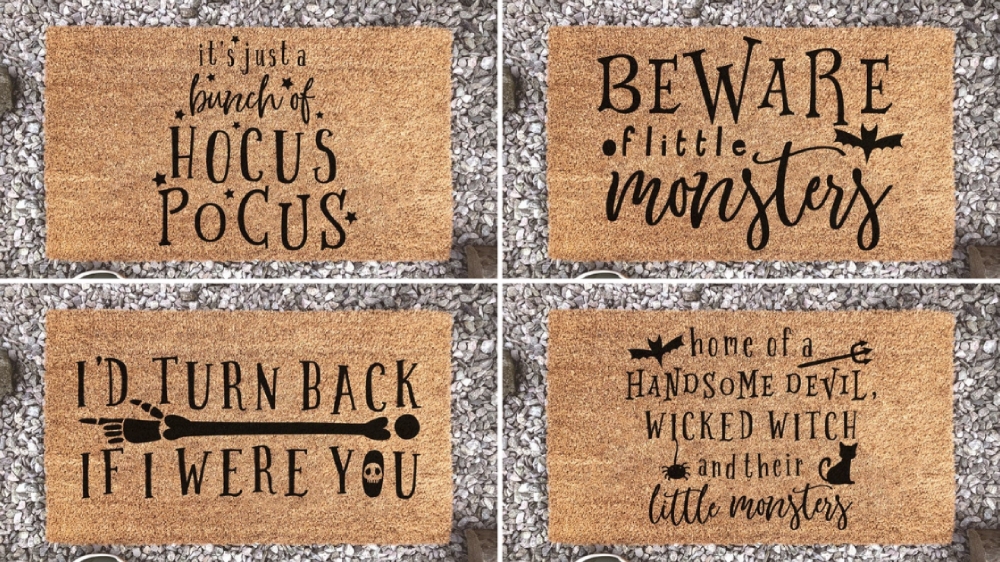 it's just a
bunch of
HOCUS
POCUS
BEWARE
of little
monsters
I'D TURN BACK
IF I WERE YOU
home of a
HANDSOME DEVIL,
WICKED WITCH
and their
little monsters